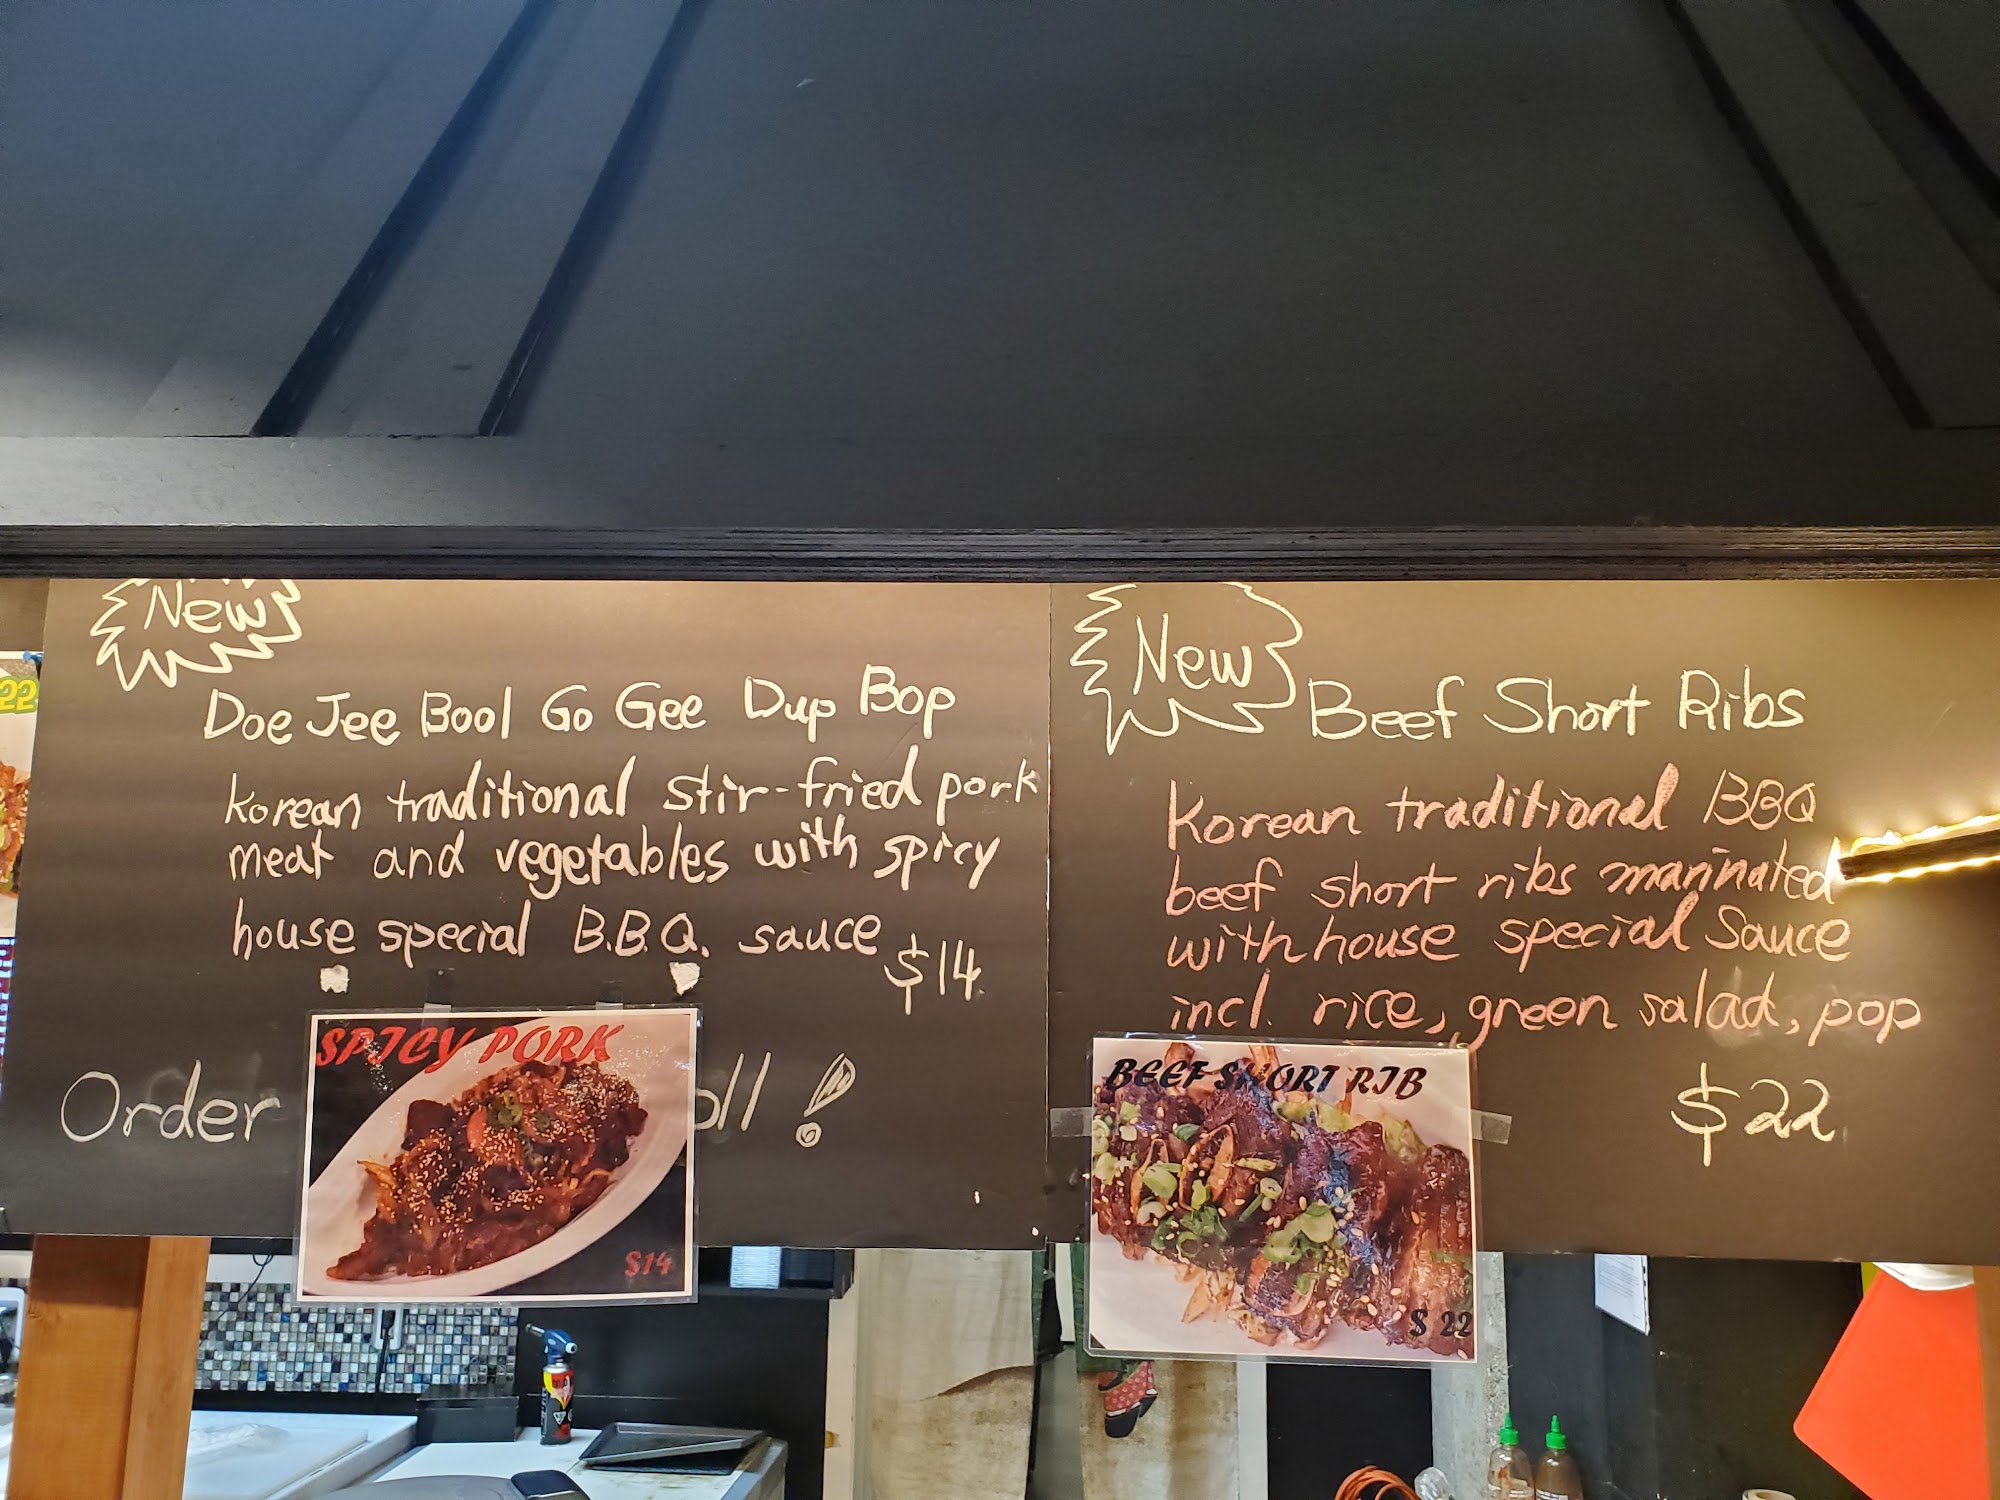 New
Doe Jee Bool Go Gee Dup Bop
Korean traditional stir-fried pork
meat and vegetables with spicy
house special B.B.Q. sauce
$14
Order
!
SPICY PORK
$14
New
Beef Short Ribs
Korean traditional BBQ
beef short ribs marinated
with house special Sauce
incl. rice, green salad, pop
$22
BEEF SHORT RIB
$22
22